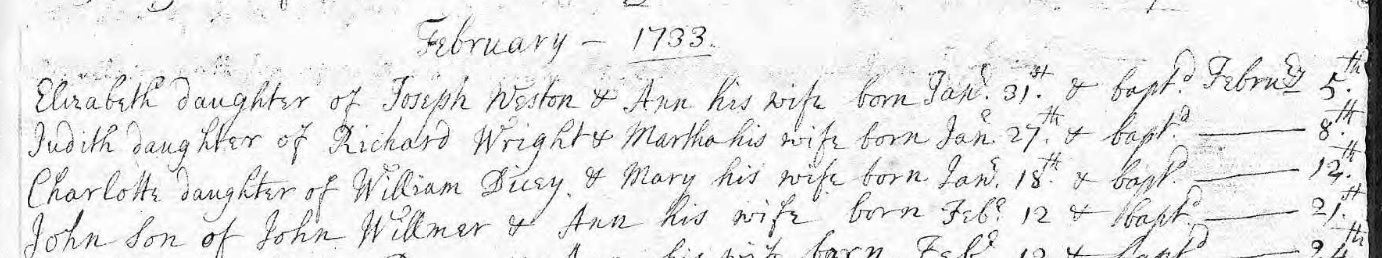 February - 1733.
Elizabeth daughter of Joseph Weston & Ann his wife born Janʳ. 31.ˢᵗ & baptᵈ. Februʳʸ 5.ᵗʰ
Judith daughter of Richard Wright & Martha his wife born Janʳ. 27.ᵗʰ & baptᵈ. 8.ᵗʰ
Charlotte daughter of William Dicey. & Mary his wife born Janʳ. 18.ᵗʰ & baptᵈ. 12.ᵗʰ
John Son of John Willmer & Ann his wife born Febʳ. 12 & baptᵈ. 21.ˢᵗ
his wife born Febʳ. 12 & baptᵈ 24.ᵗʰ